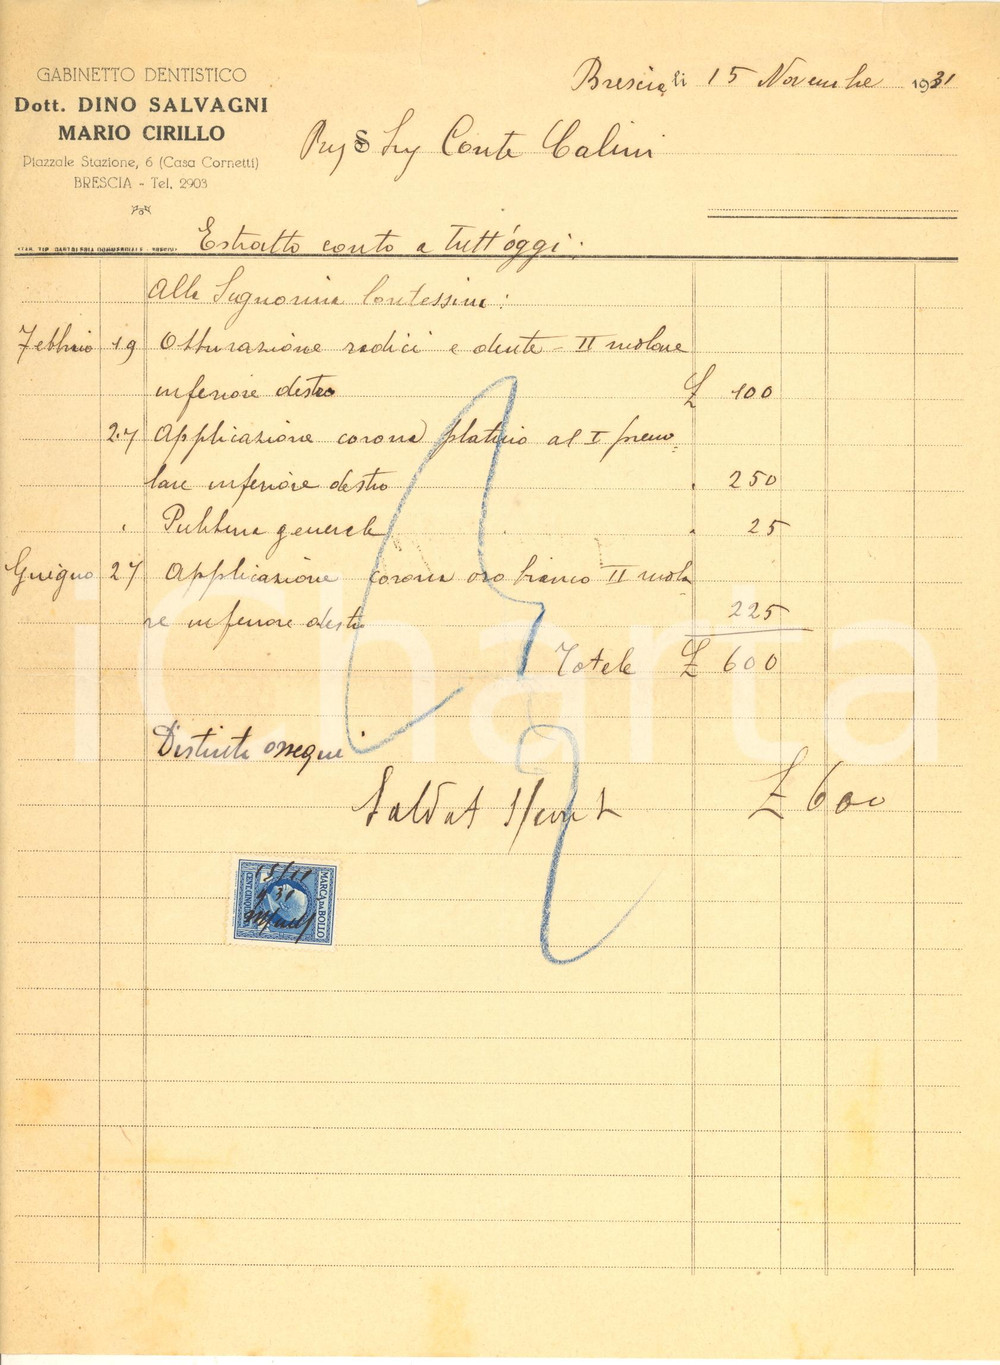 GABINETTO DENTISTICO
Dott. DINO SALVAGNI
MARIO CIRILLO
Piazzale Stazione, 6 (Casa Cornetti)
BRESCIA - Tel. 2903
Brescia, li 15 Novembre 1931
Sig Conte Calini
STAB. TIP. CARTOLERIA COMMERCIALE - BRESCIA
Estratto conto a tutt'oggi:
Alla Signorina Contessina:
Febbraio 19 Otturazione radici e dente - II molare
inferiore destro £ 100
27 Applicazione corona platino al I premo=
lare inferiore destro " 250
" Pulitura generale " 25
Giugno 27 Applicazione corona oro bianco II mola
re inferiore destro 225
Totale £ 600
Distinti ossequi
£ 600
MARCA DA BOLLO
CENT. CINQU
15/11
931
iCharta